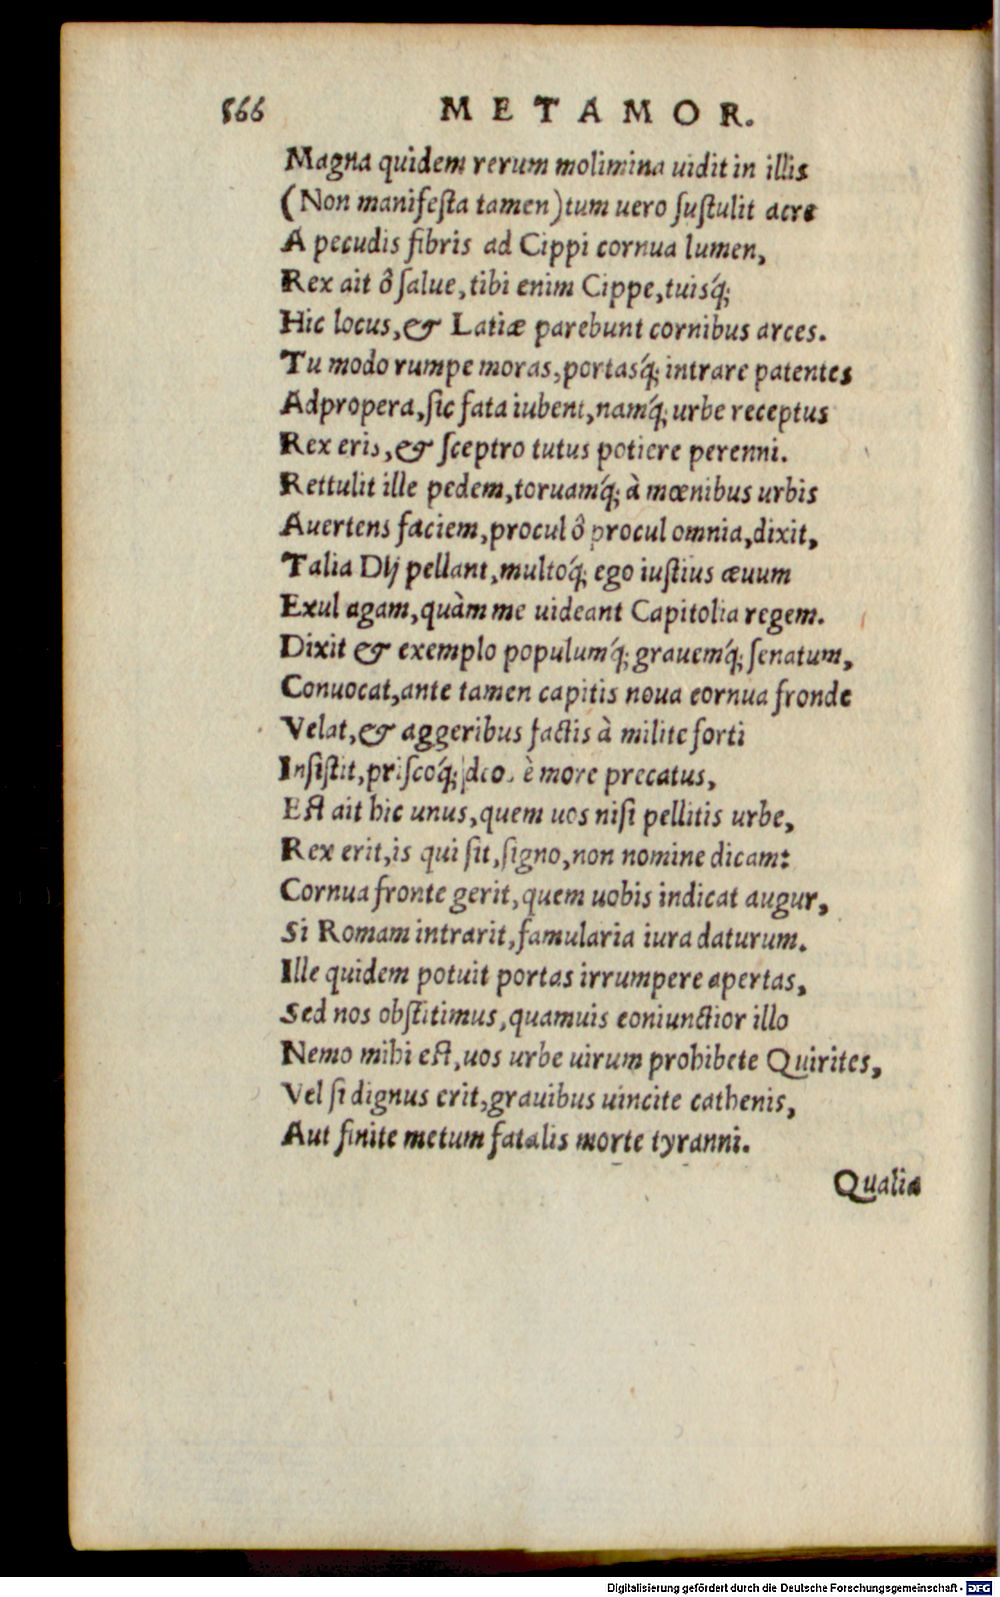 566 METAMOR.
Magna quidem rerum molimina uidit in illis
(Non manifeſta tamen) tum uero ſuſtulit acre
A pecudis fibris ad Cippi cornua lumen,
Rex ait ô ſalue, tibi enim Cippe, tuisq́;
Hic locus, & Latiæ parebunt cornibus arces.
Tu modo rumpe moras, portasq́; intrare patentes
Adpropera, ſic fata iubent, namq́; urbe receptus
Rex eris, & ſceptro tutus potiere perenni.
Rettulit ille pedem, toruamq́; à mœnibus urbis
Auertens faciem, procul ô procul omnia, dixit,
Talia Dij pellant, multoq́; ego iuſtius æuum
Exul agam, quàm me uideant Capitolia regem.
Dixit & exemplo populumq́; grauemq́; ſenatum,
Conuocat, ante tamen capitis noua cornua fronde
Velat, & aggeribus factis à milite forti
Inſiſtit, priſcoq́; deos è more precatus,
Eſt ait hic unus, quem uos niſi pellitis urbe,
Rex erit, is qui ſit, ſigno, non nomine dicam:
Cornua fronte gerit, quem uobis indicat augur,
Si Romam intrarit, famularia iura daturum.
Ille quidem potuit portas irrumpere apertas,
Sed nos obſtitimus, quamuis coniunctior illo
Nemo mihi eſt, uos urbe uirum prohibete Quirites,
Vel ſi dignus erit, grauibus uincite cathenis,
Aut finite metum fatalis morte tyranni.
Qualia
Digitalisierung gefördert durch die Deutsche Forschungsgemeinschaft - DFG